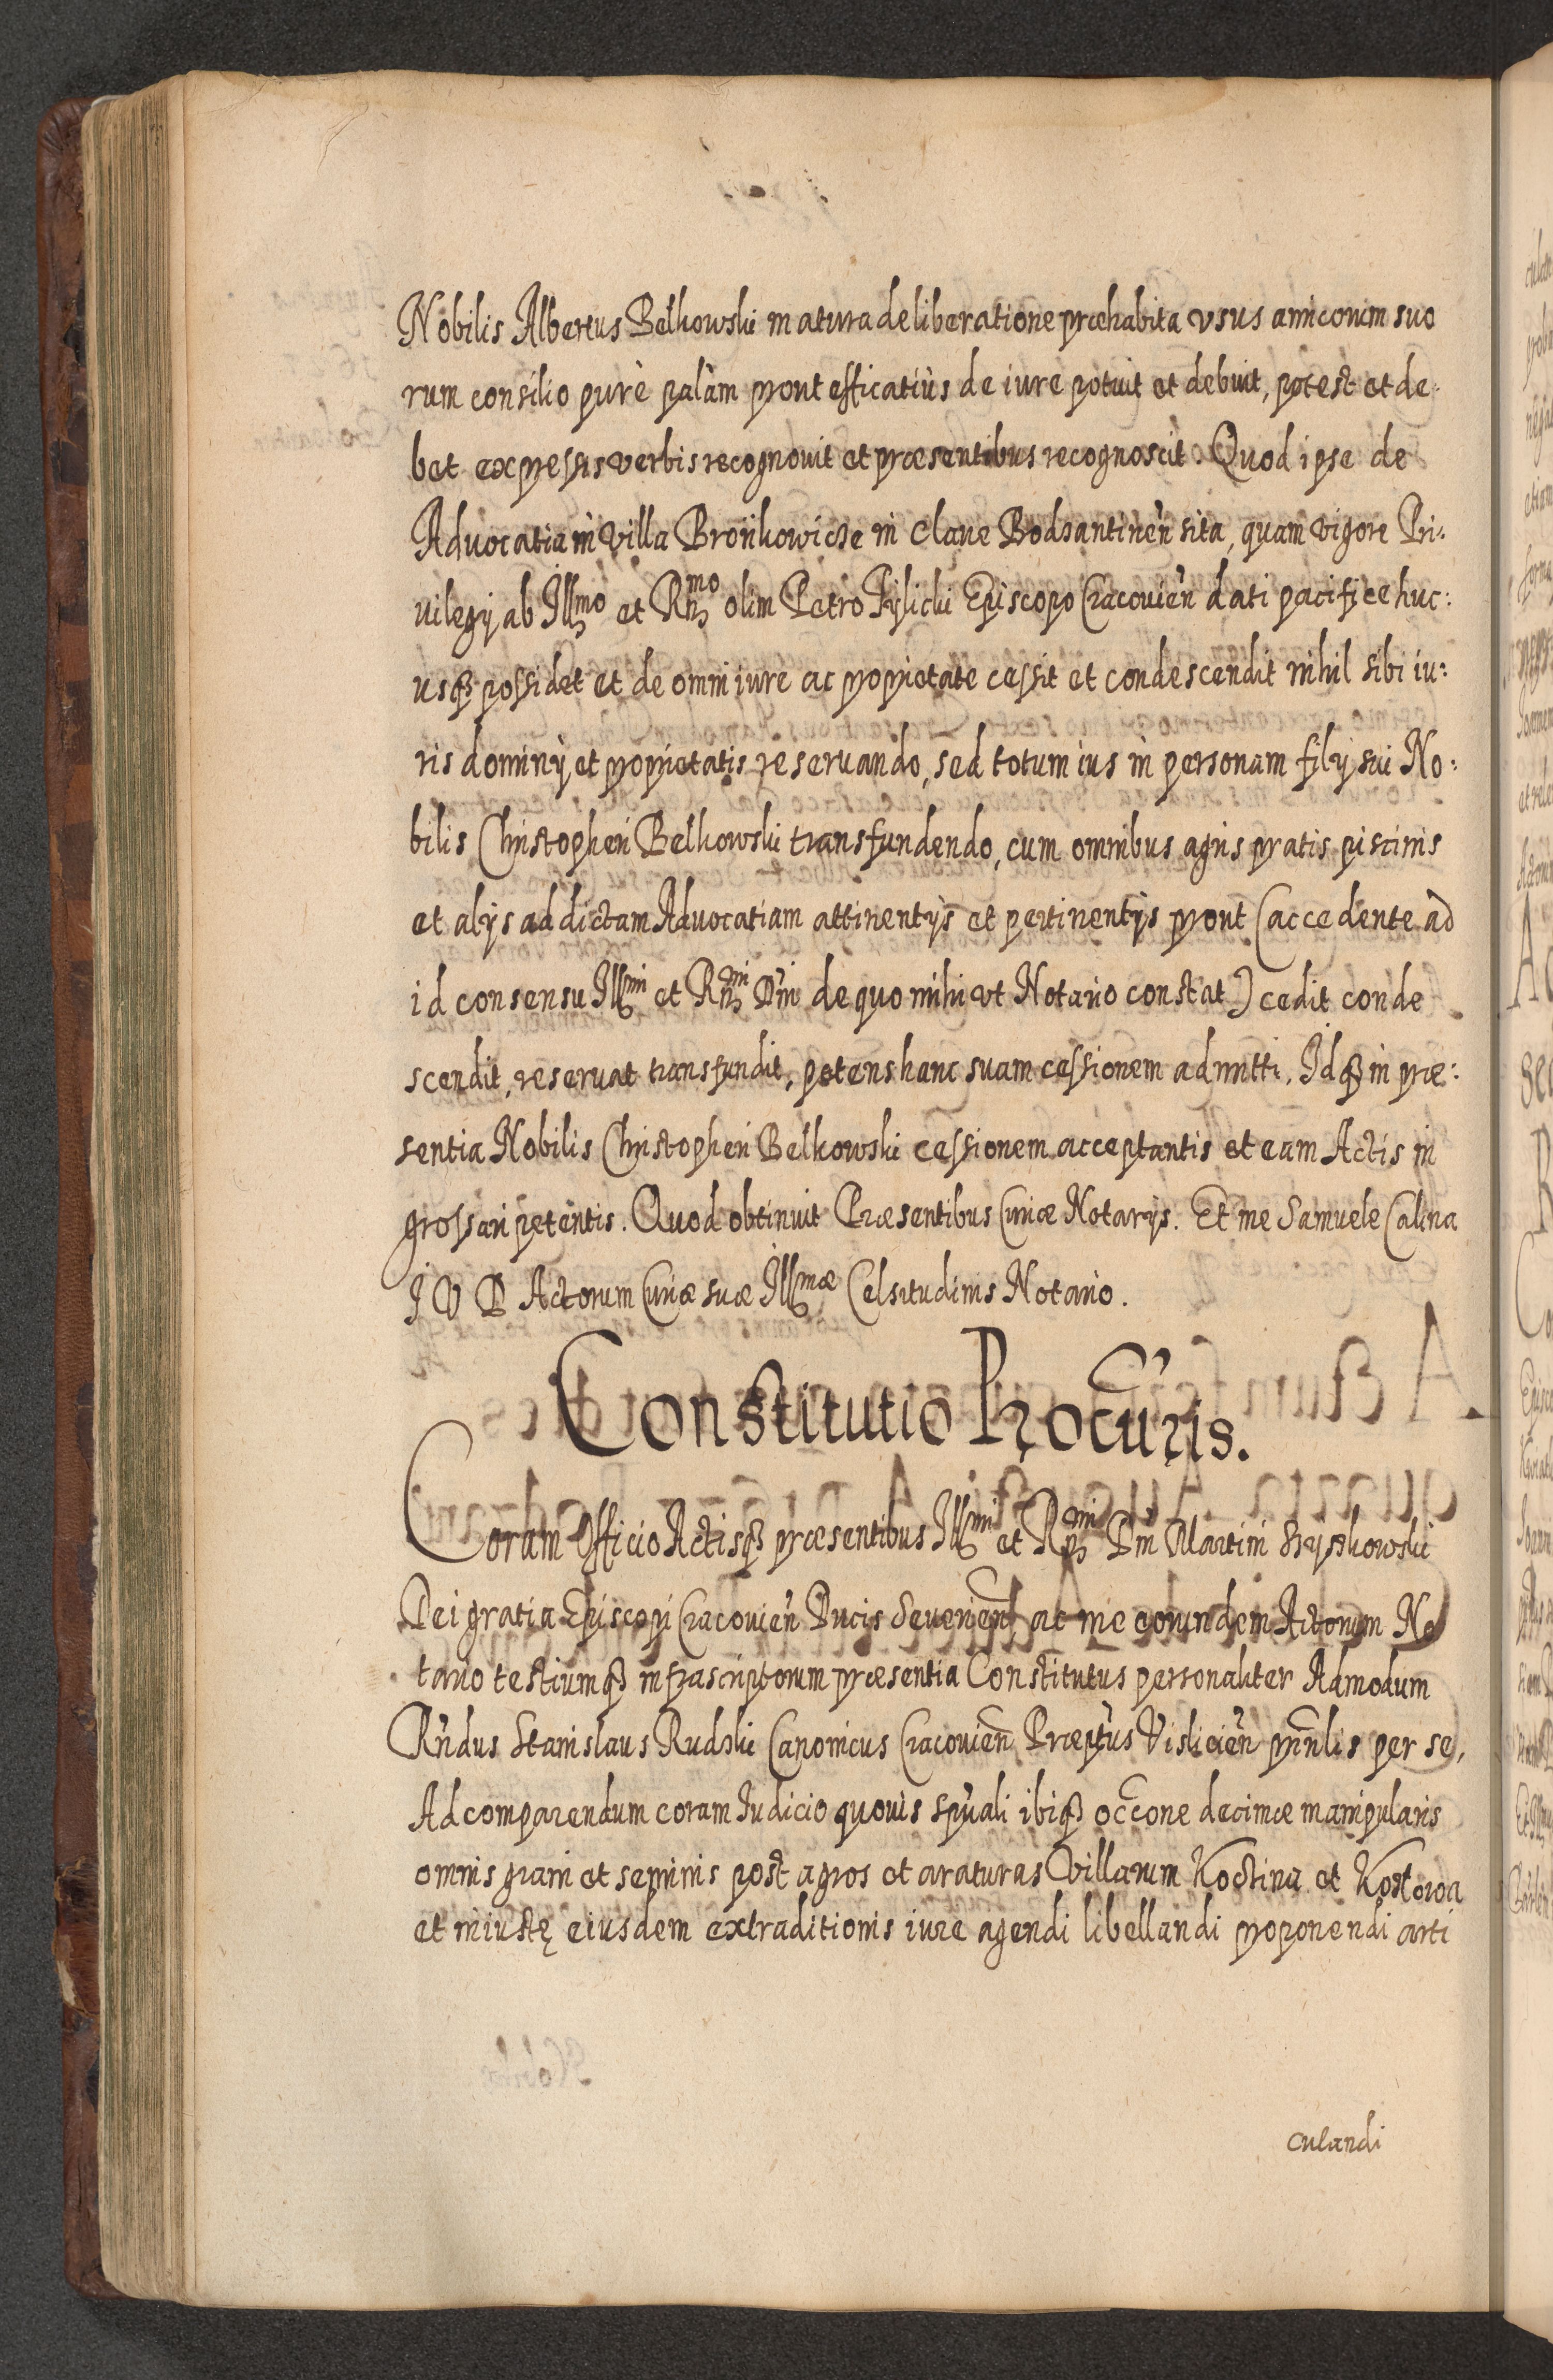 Nobilis Albertus Bełkowski matura deliberatione præhabita vsus amicorum suo
rum consilio purè palàm prout efficatiùs de iure potuit et debuit, potest et de
bet expressis verbis recognouit et præsentibus recognoscit. Quod ipse de
Aduocatia in Villa Bronkowicze in Claue Bodzantinen sita, quam vigore Pri:
uilegij ab Illmo et Rmo olim Petro Tylicki Episcopo Cracouien dati pacifice huc:
usq possidet et de omni iure ac proprietate cessit et condescendit nihil sibi iu:
ris dominij et proprietatis reseruando, sed totum ius in personam filij sui No:
bilis Christopheri Bełkowski transfundendo, cum omnibus agris pratis piscinis
et alijs ad dictam Aduocatiam attinentijs et pertinentijs prout (accedente ad
id consensu Illmi et Rmi Dni de quo mihi vt Notario constat) cedit conde
scendit, reseruat transfundit, petens hanc suam cessionem admitti. Idq in præ:
sentia Nobilis Christopheri Bełkowski cessionem acceptantis et eam Actis in
grossari petentis. Quod obtinuit Præsentibus Curiæ Notarijs. Et me Samuele Calina
I V D Actorum Curiæ suæ Illmæ Celsitudinis Notario.
Constitutio Procuris.
Coram Officio Actisq præsentibus Illmi et Rmi Dni Martini Szyszkowski
Dei gratia Episcopi Cracouien Ducis Seuerien ac me eorundem Actorum No
tario testiumq infrascriptorum præsentia Constitutus personaliter Admodum
Rndus Stanislaus Rudzki Canonicus Cracouien Præptus Vislicien prnlis per se,
Ad comparendum coram Iudicio quouis spuali ibiq occone decimæ manipularis
omnis grani et seminis post agros et araturas Villarum Koctina et Kostowa
et iniustę eiusdem extraditionis iure agendi libellandi proponendi arti
culandi